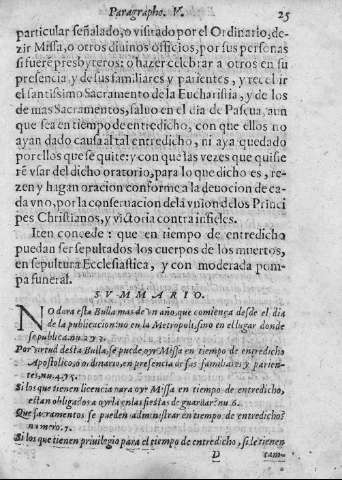 Paragrapho. V. 25
particular señalado, o visitado por el Ordinario, de-
zir Missa, o otros diuinos officios, por sus personas
si fuere presbyteros: o hazer celebrar a otros en su
presencia, y de sus familiares y parientes, y recebir
el santissimo Sacramento de la Eucharistia, y de los
de mas Sacramentos, saluo en el dia de Pascua, aun
que sea en tiempo de entredicho, con que ellos no
ayan dado causa al tal entredicho, ni aya quedado
por ellos que se quite: y con que las vezes que quisie
rē vsar del dicho oratorio, para lo que dicho es, re-
zen y hagan oracion conforme a la deuocion de ca-
da vno, por la conseruacion dela vnion de los Princi
pes Christianos, y victoria contra infieles.
Iten concede: que en tiempo de entredicho
puedan ser sepultados los cuerpos de los muertos,
en sepultura Ecclesiastica, y con moderada pom-
pa funeral.
SVMMARIO.
NO dura esta Bulla mas de vn año, que comiença desde el dia
de la publicacion: no en la Metropoli, sino en el lugar donde
se publica. nu. 2 y 3.
Por virtud desta Bulla, se puede oyr Missa en tiempo de entredicho
Apostolico, o ordinario, en presencia de sus familiares y parien-
tes, nu. 4. y 5.
Si los que tienen licencia para oyr Missa en tiempo de entredicho,
estan obligados a oyrla en las fiestas de guardar? nu. 6.
Que sacramentos se pueden administrar en tiempo de entredicho?
numero. 7.
Si los que tienen priuilegio para el tiempo de entredicho, si le tienen
D tam-